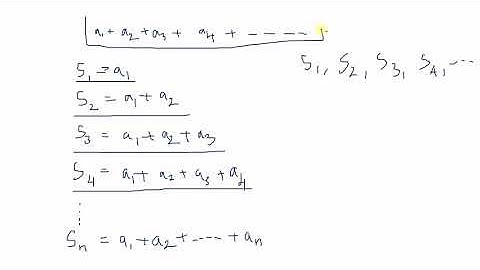 a₁ + a₂ + a₃ + a₄ + -----
S₁, S₂, S₃, S₄, ---
S₁ = a₁
S₂ = a₁ + a₂
S₃ = a₁ + a₂ + a₃
S₄ = a₁ + a₂ + a₃ + a₄
⋮
Sₙ = a₁ + a₂ + ---- + aₙ